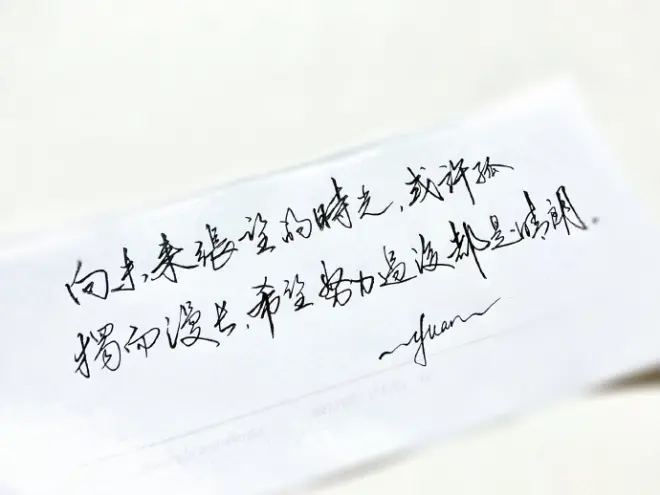 向未来張望的時光,或許孤
獨而漫长,希望努力過後都是晴朗.
~Yuan~